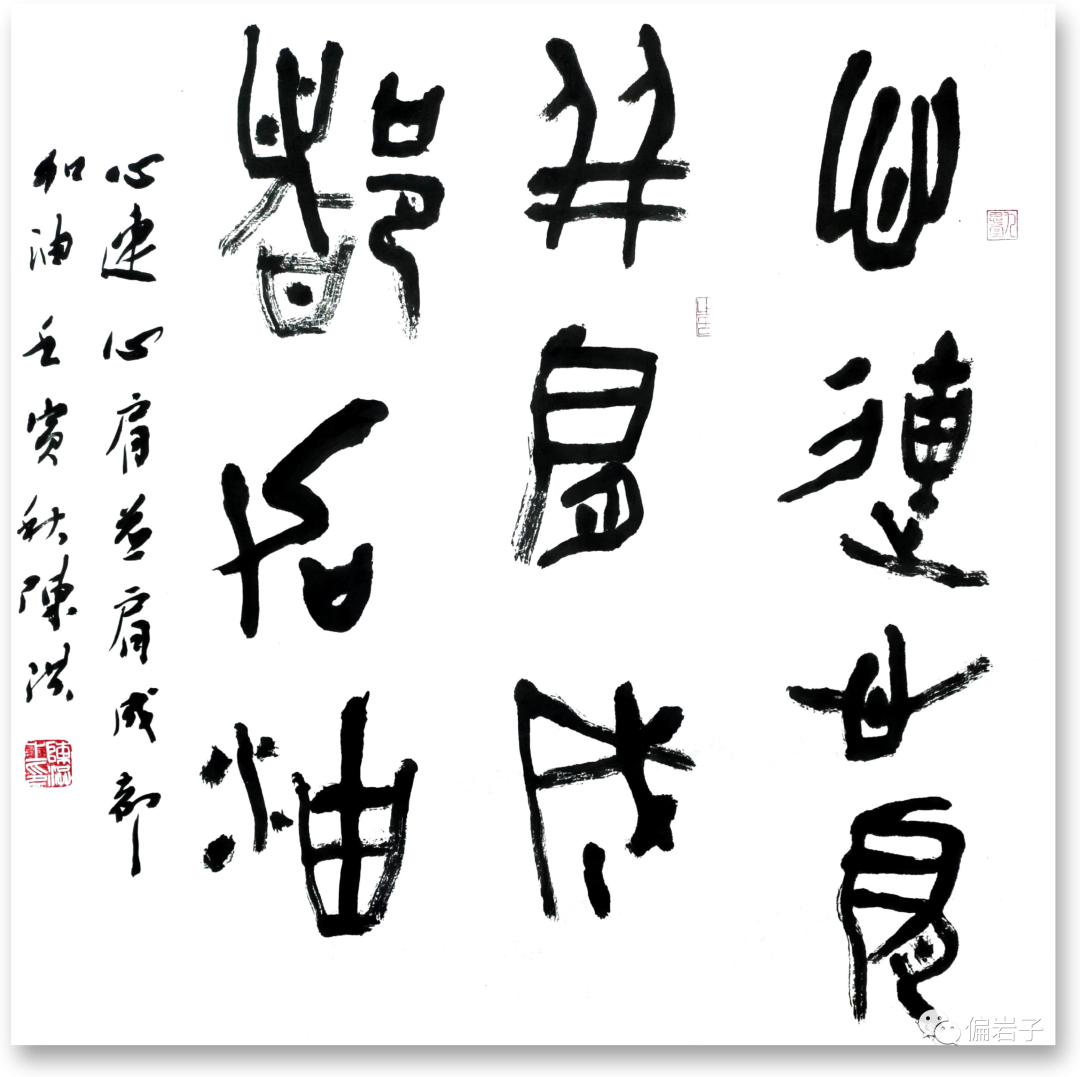 心連心肩
并肩成
都加油
心連心肩並肩成都
加油 壬寅秋陳洪
偏岩子